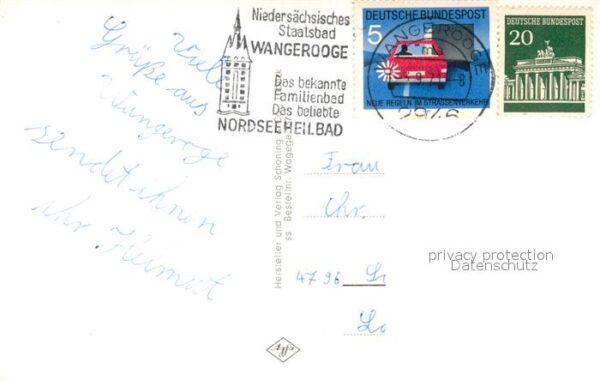 Niedersächsisches
Staatsbad
WANGEROOGE
Das bekannte
Familienbad
Das beliebte
NORDSEEHEILBAD
DEUTSCHE BUNDESPOST
5
NEUE REGELN IM STRASSENVERKEHR
WANGEROOGE
2946
DEUTSCHE BUNDESPOST
20
Viele
Grüße aus
Wangeroge
sendet ihnen
ihr Helmut
Hersteller und Verlag Schöning
ss Bestellnr Wageg
Frau
Chr.
4796
privacy protection
Datenschutz